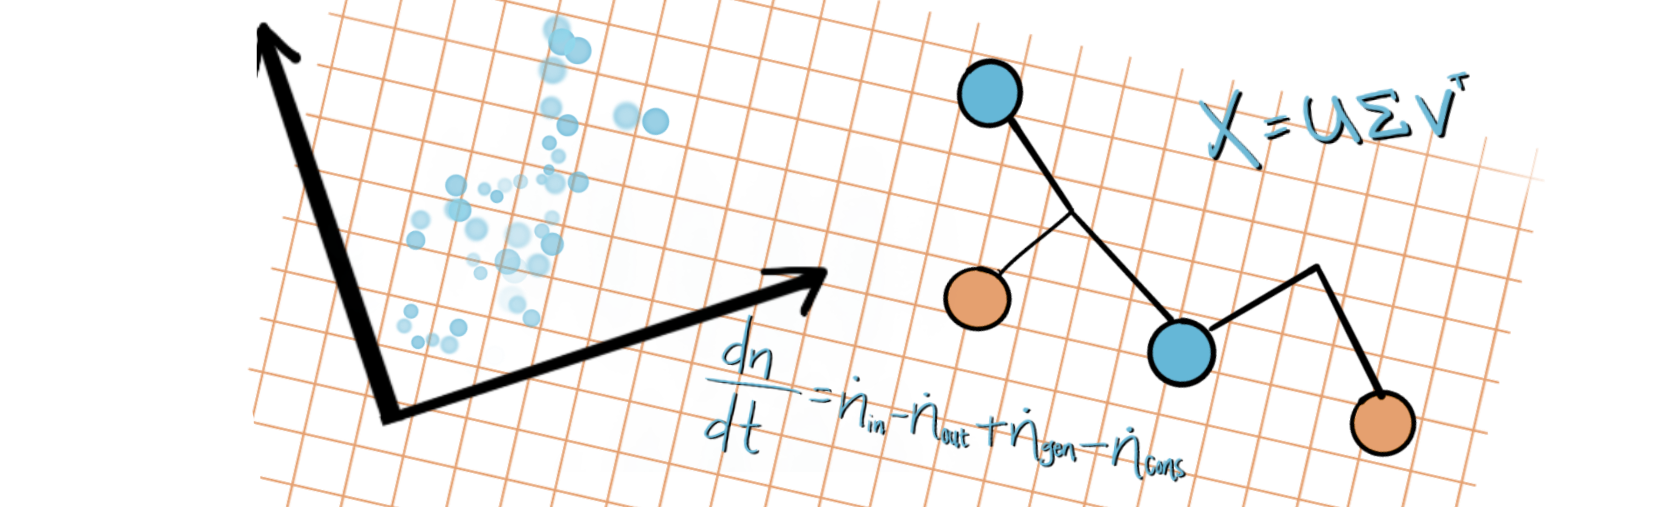 X = UΣVᵀ
dn/dt = ṅ_in - ṅ_out + ṅ_gen - ṅ_cons